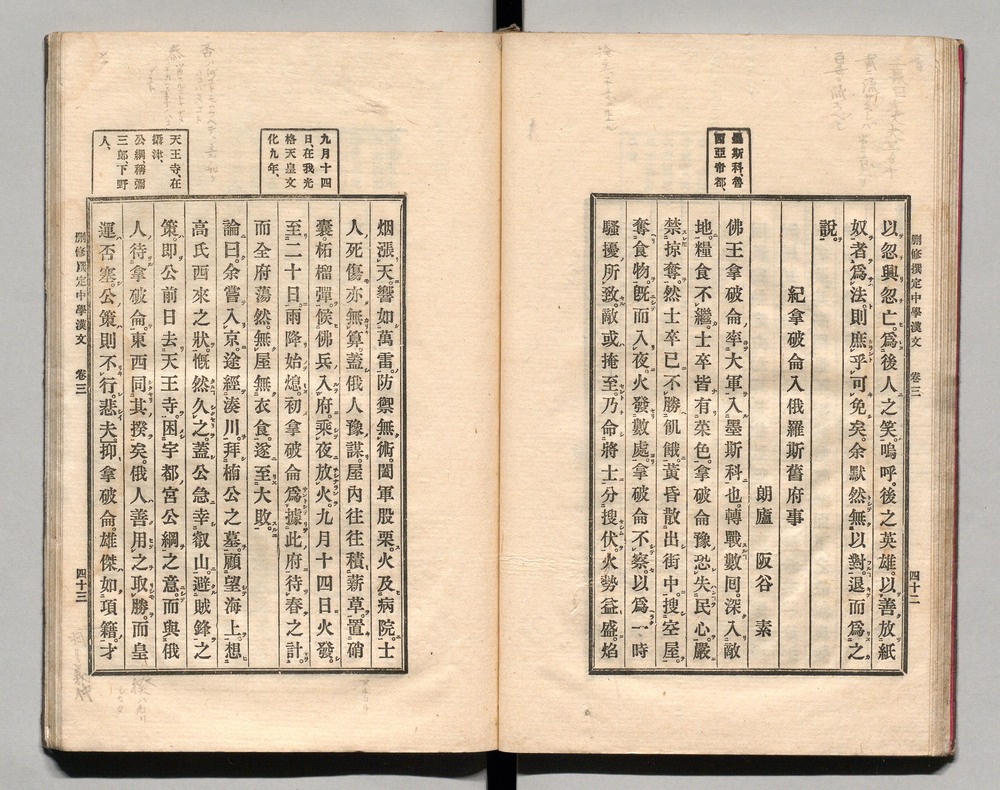 刪修撰定中學漢文 卷三 四十二
墨斯科、魯
西亞帝都、
以忽興忽亡。爲後人之笑。嗚呼。後之英雄。以善放紙
奴者爲法。則庶乎可免矣。余默然無以對。退而爲之
說。
紀拿破侖入俄羅斯舊府事
朗廬 阪谷 素
佛王拿破侖率大軍入墨斯科也。轉戰數囘。深入敵
地。糧食不繼。士卒皆有菜色。拿破侖豫恐失民心。嚴
禁掠奪。然士卒已不勝飢餓。黃昏散出街中。搜空屋。
奪食物。既而入夜。火發數處。拿破侖不察。以爲一時
騷擾所致。敵或掩至。乃命將士分搜伏。火勢益盛。焰
九月十四
日、在我光
格天皇文
化九年、
天王寺、在
攝津、
公綱、稱彌
三郎、下野
人、
烟漲天。響如萬雷。防禦無術。闔軍股栗。火及病院。士
人死傷亦無算。蓋俄人豫謀。屋內往往積薪草。置硝
囊。柘榴彈。候佛兵入府。乘夜放火。九月十四日火發。
至二十日。雨降始熄。初拿破侖爲據此府。待春之計。
而全府蕩然。無屋無衣食。遂至大敗。
論曰。余嘗入京。途經湊川。拜楠公之墓。顧望海上。想
高氏西來之狀。慨然久之。蓋公急幸叡山。避賊鋒之
策。即公前日去天王寺。困宇都宮公綱之意。而與俄
人待拿破侖。東西同其揆矣。俄人善用之取勝。而皇
運否塞。公策則不行。悲夫。抑拿破侖。雄傑如項籍。才
刪修撰定中學漢文 卷三 四十三